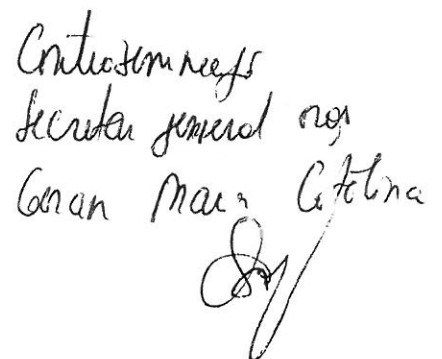 Contrasemnează
Secretar general oraș
Goran Maria Cătălina